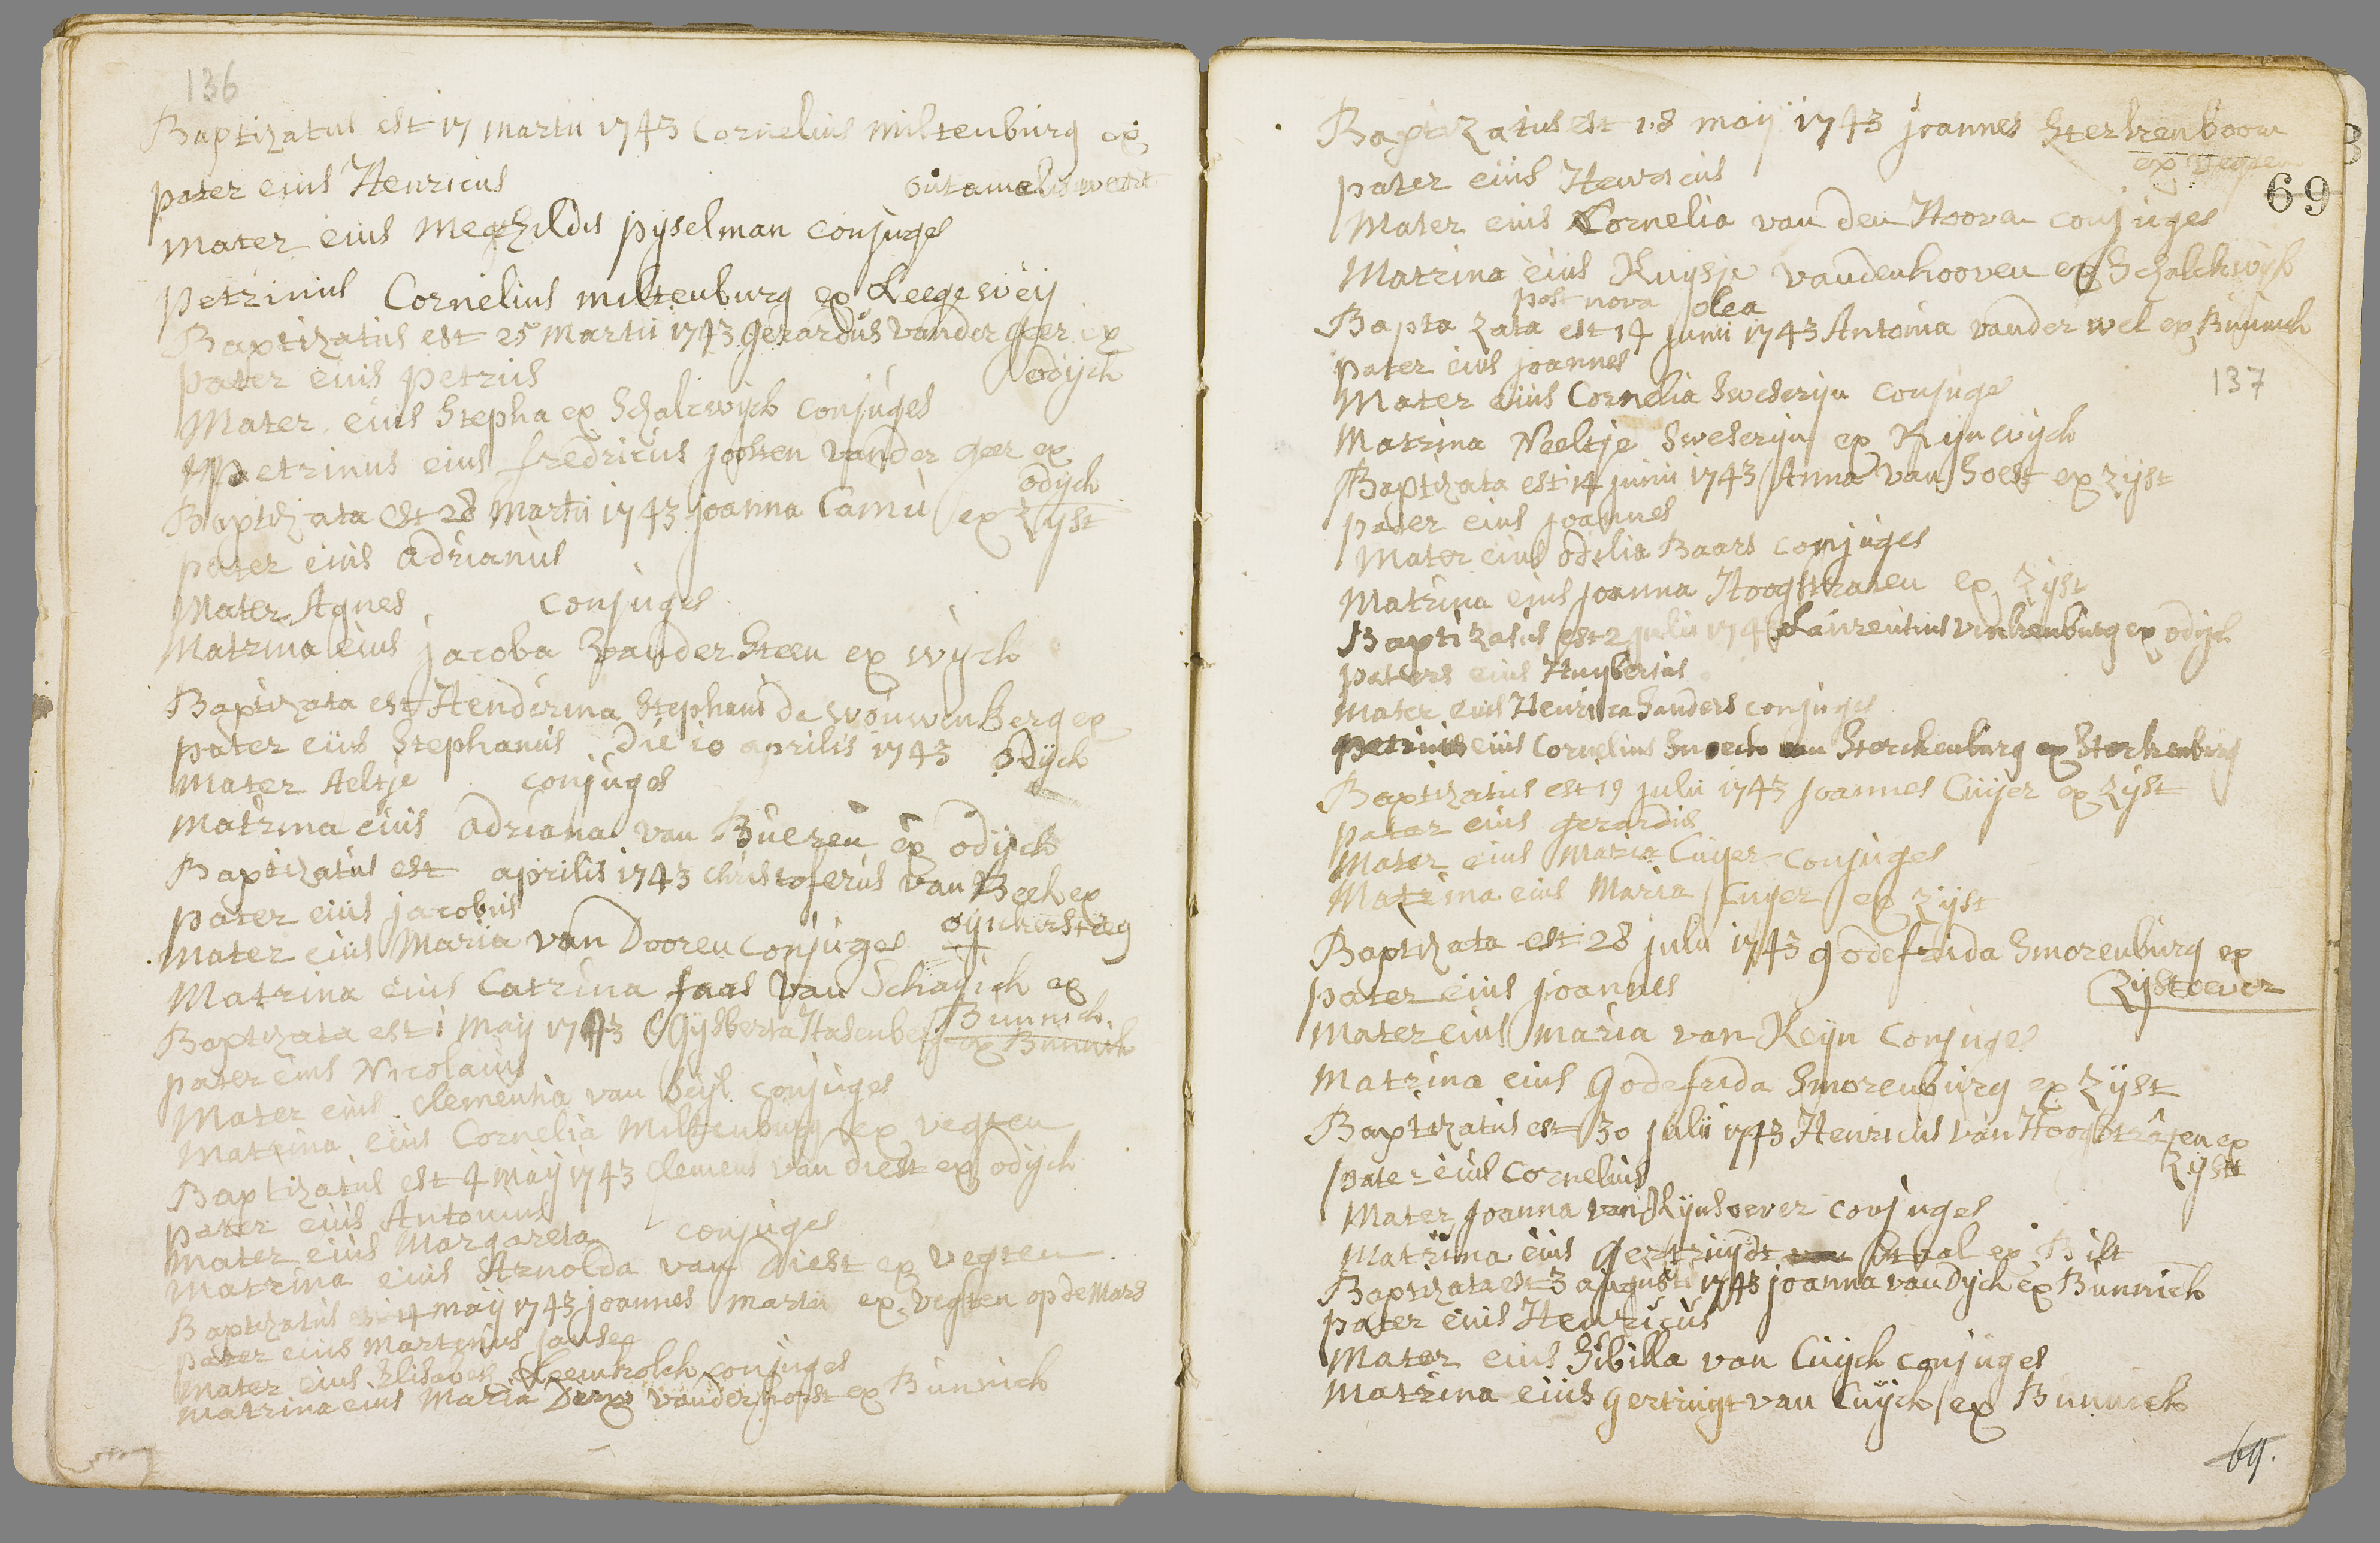 136
Baptizatus est 17 martii 1743 Cornelius miltenburg ex
pater eius Henricus outamelisweert
mater eius Megthildis pijselman conjuges
petrinus Cornelius miltenburg ex Leegeweij
Baptizatus est 25 martii 1743 gerardus vander geer ex
pater eius petrus odijck
Mater eius Stepha ex Schalcwijck conjuges
petrinus eius fredricus joosten vander geer ex
odijck
Baptizata est 28 martii 1743 joanna Camu ex Zijst
pater eius adrianus
Mater Agnes conjuges
Matrina eius jacoba vander Steen ex wijck
Baptizata est Henderina Stephani de wouwenberg ex
pater eius Stephanus die 10 aprilis 1743 odijck
Mater Aeltje conjuges
Matrina eius adriana van Bueren ex odijck
Baptizatus est aprilis 1743 christoferus van Beek ex
pater eius jacobus
mater eius Maria van Dooren conjuges
Matrina eius Catrina faas van Schayick ex
Bunnick
Baptizata est 1 maij 1743 Gijsberta Hasenberg ex Bunnik
pater eius Nicolaus
Mater eius clementia van Seijl conjuges
Matrina eius Cornelia Miltenburg ex vegten
Baptizatus est 4 maij 1743 clemens van diest ex odijck
pater eius Antonius
Mater eius Margareta conjuges
Matrina eius Arnolda van Diest ex vegten
Baptizatus est 14 maij 1743 joannes martii ex vegten op de Mars
pater eius martinus janse
mater eius Elisabet Kemkolck conjuges
matrina eius Maria Derx vanderhorst ex Bunnick
Baptizatus est 18 maij 1743 joannes Sterkenboom
ex vegten
pater eius Henricus
69
Mater eius Cornelia van den Hooven conjuges
Matrina eius Kuijsje vandenhooven ex Schalckwijk
post nova olea
Baptizata est 14 junii 1743 Antonia vander wel ex Bunnick
pater eius joannes
137
Mater eius Cornelia Sweserijn conjuges
Matrina Neeltje Sweserijn ex Rijnwijck
Baptizata est 14 junii 1743 Anna van Soest ex zijst
pater eius joannes
Mater eius odilia Baars conjuges
Matrina eius joanna Hoogstraten ex Zijst
Baptizatus est 2 julii 174 Laurentius vinkenburg ex odijck
paters eius Huijbertus
mater eius Henrica Sanders conjuges
petrinus eius Cornelius Snoeck van Sterckenburg ex Sterkenburg
Baptizatus est 19 julii 1743 joannes Cuijer ex zijst
pater eius gerardus
Mater eius Maria Cuijer conjuges
Matrina eius Maria Cuijer ex zijst
Baptizata est 28 julii 1743 godefrida Smorenburg ex
pater eius joannes Zijstoever
Mater eius maria van Reijn conjuges
Matrina eius godefrida Smorenburg ex zijst
Baptizatus est 30 julii 1743 Henricus van Hoogstraten ex
pater eius Cornelius Zijst
Mater joanna van Rijnsoever conjuges
Matrina eius Gertruijdt van Staal ex Bilt
Baptizata est 3 augusti 1743 joanna van Dijck ex Bunnick
pater eius Henricus
Mater eius Sibilla van Cuijck conjuges
Matrina eius gertruijt van Cuijck ex Bunnick
69.